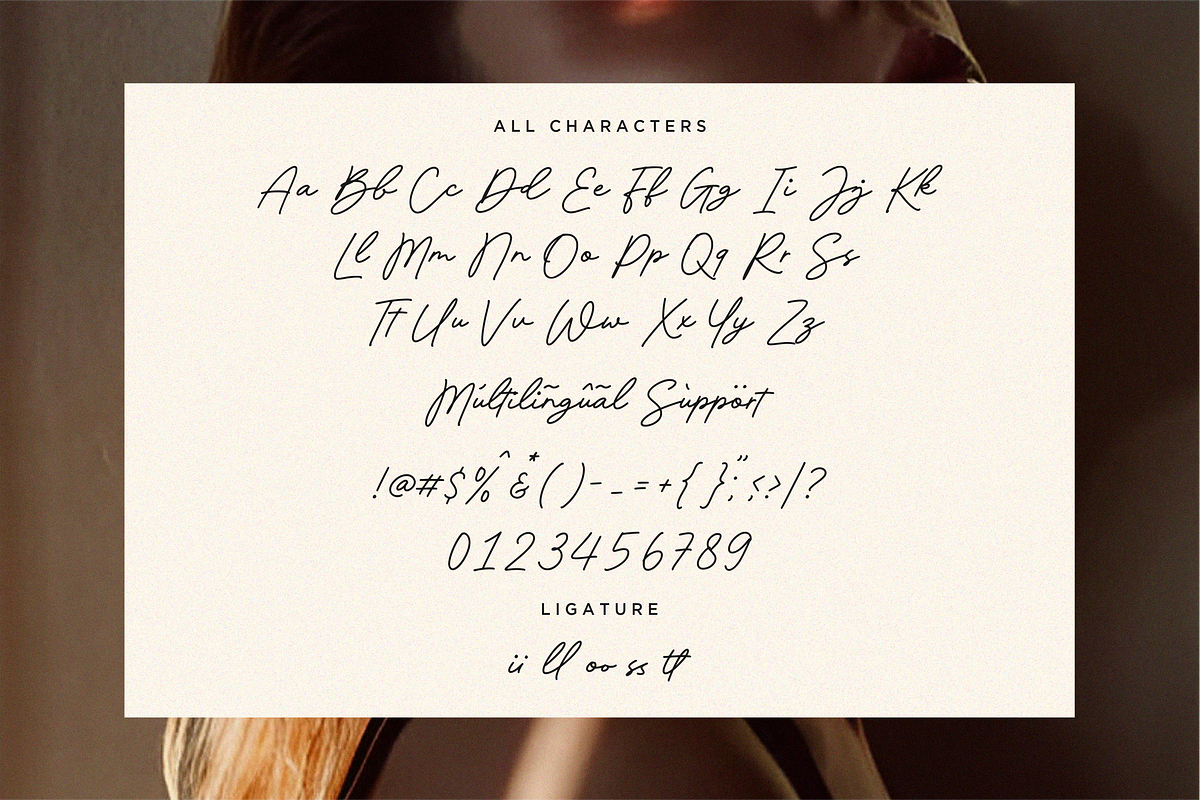 ALL CHARACTERS
Aa Bb Cc Dd Ee Ff Gg Ii Jj Kk
Ll Mm Nn Oo Pp Qq Rr Ss
Tt Uu Vv Ww Xx Yy Zz
Múltilïñgûãl Sùppört
!@#$%^&*()-_=+{}”;:<?>/?
0123456789
LIGATURE
ii ll oo ss tt